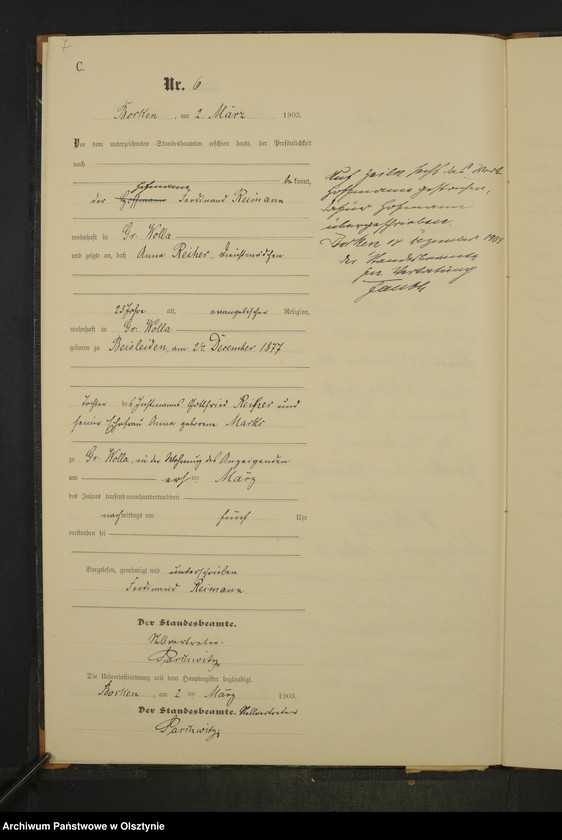 7
C.
Nr. 6
Borken, am 2. März 1903.
Vor dem unterzeichneten Standesbeamten erschien heute, der Persönlichkeit
nach
bekannt,
Hofmann
der Ferdinand Reimann
wohnhaft in Gr. Wolla
und zeigte an, daß Anna Reiher, Dienstmädchen
25 Jahre alt, evangelischer Religion,
wohnhaft in Gr. Wolla
geboren zu Beisleiden, am 24. Dezember 1877
Tochter des Instmanns Gottfried Reiher und
seiner Ehefrau Anna geborene Marks
zu Gr. Wolla, in der Wohnung des Anzeigenden
am ersten März
des Jahres tausendneunhundertunddrei
nachmittags um fünf Uhr
verstorben sei
Vorgelesen, genehmigt und unterschrieben
Ferdinand Reimann
Der Standesbeamte.
Stellvertreter.
Parschwitz
Die Uebereinstimmung mit dem Hauptregister beglaubigt.
Borken, am 2 ten März 1903.
Der Standesbeamte. Stellvertreter
Parschwitz
Auf Zeile sechs das Wort
gestrichen,
dafür Hofmann
übergeschrieben.
Borken 14 Dezember 1904
der Standesbeamte
in Vertretung
Archiwum Państwowe w Olsztynie